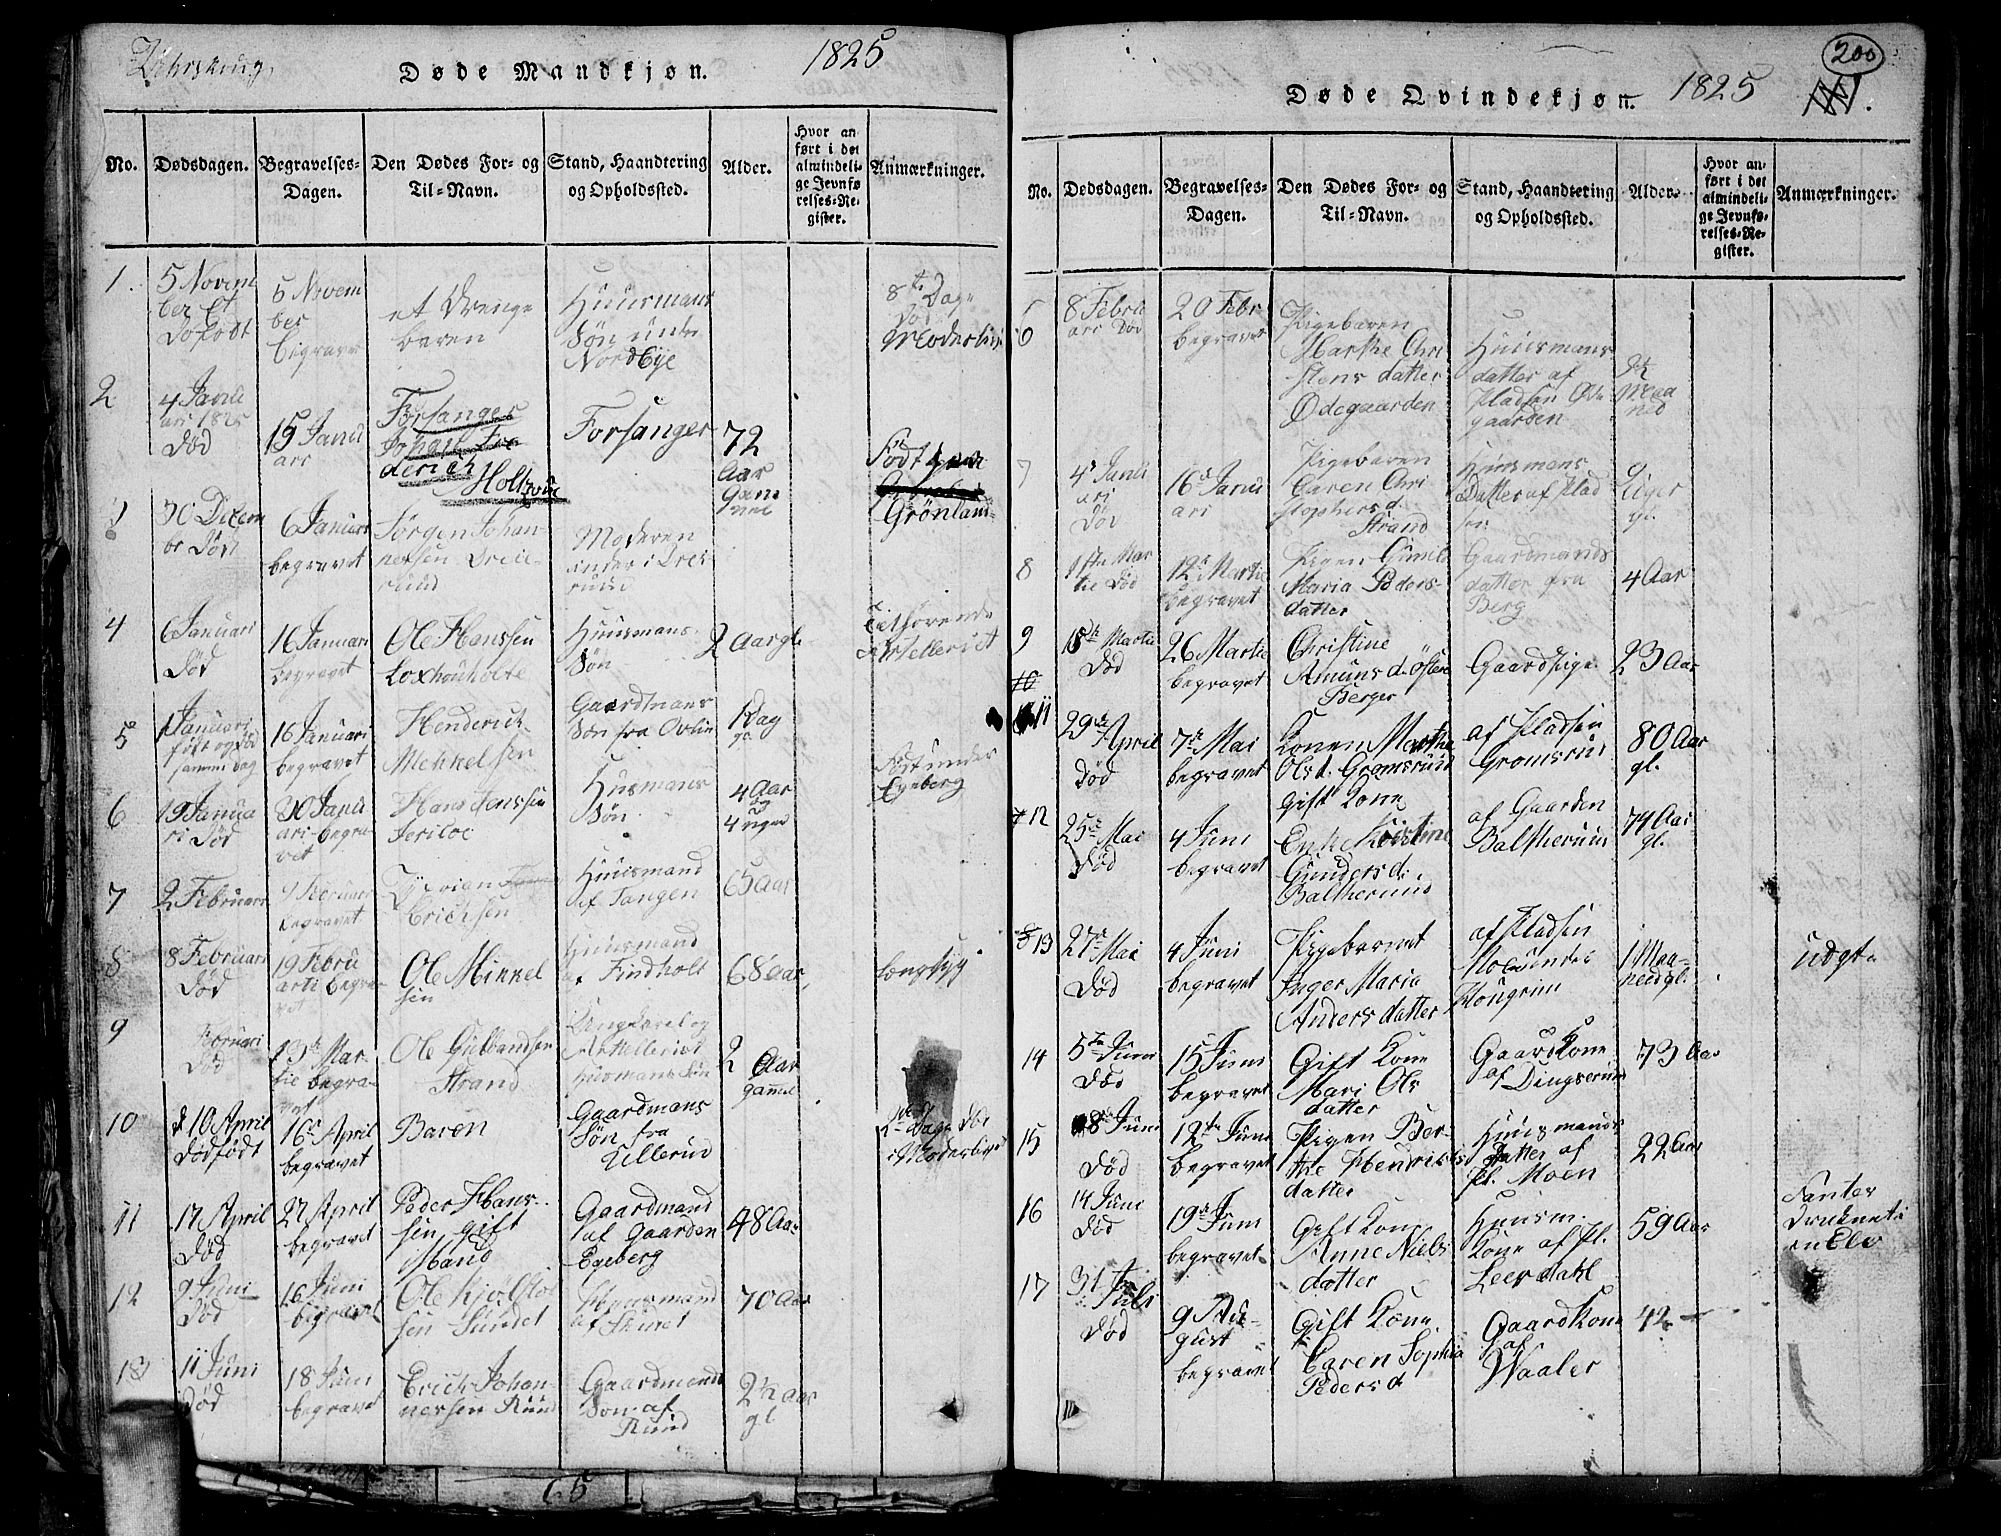 Døde Mandkjøn. 1825
No.
Dødsdagen.
Begravelses-
Dagen.
Den Dødes For- og
Til-Navn.
Stand, Haandtering
og Opholdssted.
Alder.
Hvor an
ført i det
almindeli-
ge Jevnfø
relses-Re-
gister.
Anmærkninger.
1
5 Novem
ber Et
Dødfødt
5 Novem
ber
et Drenge
baren
Huusmans
Søn unde
Nordbye
8te Dage
Død
2
4 Janu
ari 1825
Død
15 Janu
ari
Forsanger
Johan Fre
derich
Forsanger
72
Aar
Gam
mel
Født
Grønland
3
30 Decem
br Død
6 Januari
begravet
Jørgen Johan
nessen
Moderen
4
6 Januari
Død
16 Januari
begravet
Ole Hanssen
Huusmans
Søn
2 Aar gl.
Tilhørende
5
1 Januari
født og død
samme dag
16 Januari
begravet
Henderich
Mehkelsen
Gaardmans
Søn fra
1 Dag
gl.
6
19 Janua
ri Død
30 Janu
ari begra
vet
Hans Jenssen
Husmans
Søn
4 Aar
og
4 uger
Født under
Egeberg
7
2 Februari
begravet
Erichsen
Huusmand
af Tangen
65 Aar
8
8 Februari
Død
19 Febru
arii begra
vet
Ole Minnel
sen
Huusmand
af Findholt
68 aar
9
Februari
Død
13de Mar
tie begra
vet
Ole Gulbrandsen
Strand
Husmans Søn
2 Aar
gammel
10
d 10 April
Dødfødt
16de April
begravet
Baren
Gaardmans
Søn fra
Ullerud
11
17 April
Død
27 April
begravet
Peder Hans-
sen gift
Mand
Gaardmand
af Gaarden
Egeberg
48 Aar
12
9 Juni
Død
16 Juni
begravet
Ole Kjølstø
sen Sundet
Huusmand
70 Aar
13
11 Juni
Død
18 Juni
begravet
Erich Johan-
nessen Ruud
Gaardmands
Søn af
Ruud
2½ aar
gl
65
200
Døde Qvindekjøn. 1825
No.
Dødsdagen.
Begravelses-
Dagen.
Den Dødes For- og
Til-Navn.
Stand, Haandtering
og Opholdssted.
Alder.
Hvor an-
ført i det
almindeli-
ge Jevnfø-
relses-Re-
gister.
Anmærkninger.
6
8 Febru
ari Død
20 Febr
begravet
Pigebaren
Marthe Chri
stens datter
Ødegaarden
Huusmans
datter af
Pladsen Øde
gaarden
Maa
ned
7
4de Janu
ari
Død
16de Janu
ari
Pigebaren
Caren Chri
stophersd.
Strand
Huusmans
Datter af Plad
sen
9
Uger
gl.
8
1ste Mar
tie Død
12te Martie
begravet
Pigen Gunild
Maria Peders
datter
Gaardmands
datter fra
Berg
4 Aar
9
18de Martie
Død
26 Martie
begravet
Christine
Amunsd. Østen
Berger
Gaardpige
23 Aar
10
11
29de
April
Død
7de Mai
begravet
Konen Marthe
Olsd. Gromsrud
Gift Kone
af Pladsen
Gromsrud
80 Aar
gl.
12
25de Mai
Død
4 Juni
begravet
Enke Kiistine
Gundersd.
Baltherud
af Gaarden
Baltherud
74 Aar
gl.
13
27de Mai
Død
4 Juni
begravet
Pigebarnet
Inger Maria
Anders datter
af Pladsen
1 Maa-
ned gl.
udgt.
14
5te Juni
Død
15 Juni
begravet
Gift Kone
Mari Ols
datter
Gaardkone
af Dingserud
73 Aar
15
8de Juni
Død
12te Juni
begravet
Pigen Ber-
the Henrichs
datter
Huusmands
datter af
Pl. Moen
22 Aar
16
14 Juni
Død
19de Juni
begravet
Gift Kone
Anne Niels
datter
Huusm.
Kone af Pl.
Leerdahl
59 Aar
Druknet i
en Elv
17
31te
Juli
Død
9 Au-
gust
begravet
Gift Kone
Caren Sophia
Pedersd
Gaardkone
af
Waaler
42